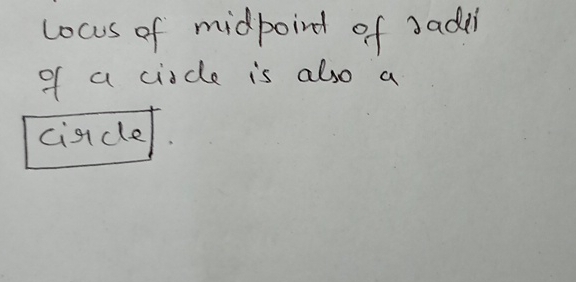 Locus of midpoint of radii
of a circle is also a
circle.